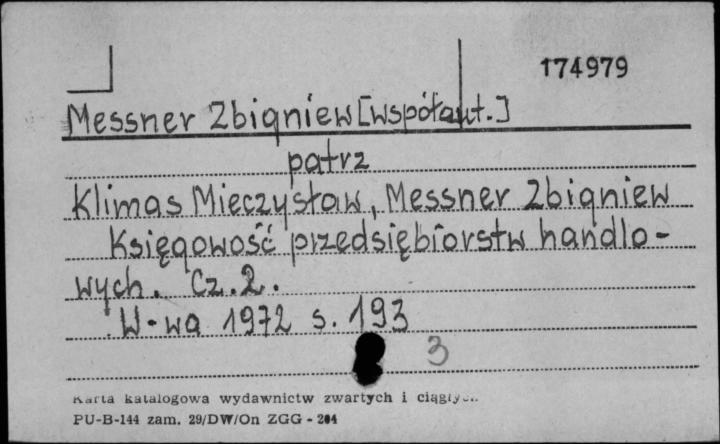 174979
Messner Zbigniew [współaut.]
patrz
Klimas Mieczysław, Messner Zbigniew
Księgowość przedsiębiorstw handlo-
wych. Cz. 2.
W-wa 1972 s. 193
3
Karta katalogowa wydawnictw zwartych i ciągłych
PU-B-144 zam. 29/DW/On ZGG - 204